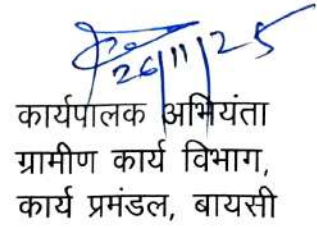 26/11/25
कार्यपालक अभियंता
ग्रामीण कार्य विभाग,
कार्य प्रमंडल, बायसी